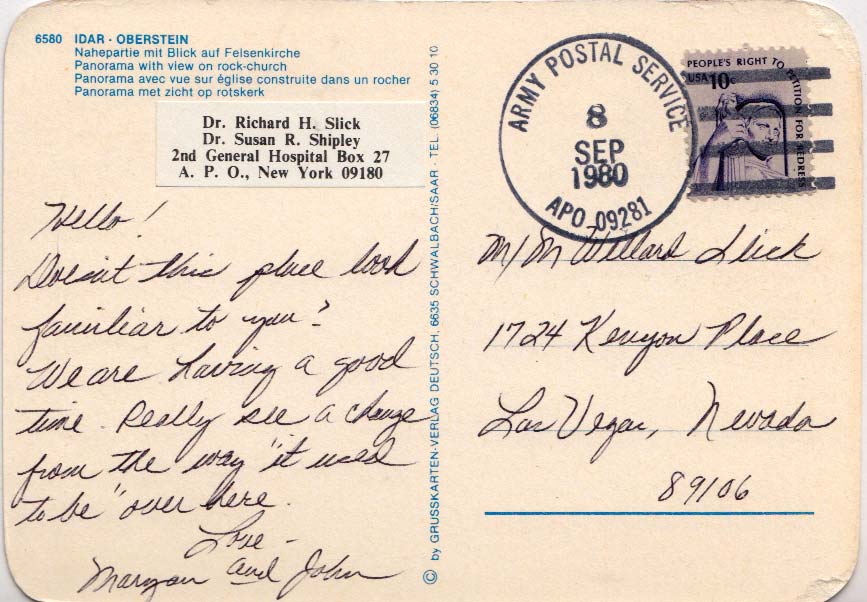 6580 IDAR - OBERSTEIN
Nahepartie mit Blick auf Felsenkirche
Panorama with view on rock-church
Panorama avec vue sur église construite dans un rocher
Panorama met zicht op rotskerk
Dr. Richard H. Slick
Dr. Susan R. Shipley
2nd General Hospital Box 27
A. P. O., New York 09180
Hello!
Doesn't this place look
familiar to you?
We are having a good
time. Really see a change
from the way "it used
to be" over here.
Love -
Maryan and John
© by GRUSSKARTEN-VERLAG DEUTSCH, 6635 SCHWALBACH/SAAR · TEL. (06834) 5 30 10
ARMY POSTAL SERVICE
8
SEP
1980
APO 09281
PEOPLE'S RIGHT TO PETITION FOR REDRESS
USA 10c
M/M Willard Slick
1724 Kenyon Place
Las Vegas, Nevada
89106